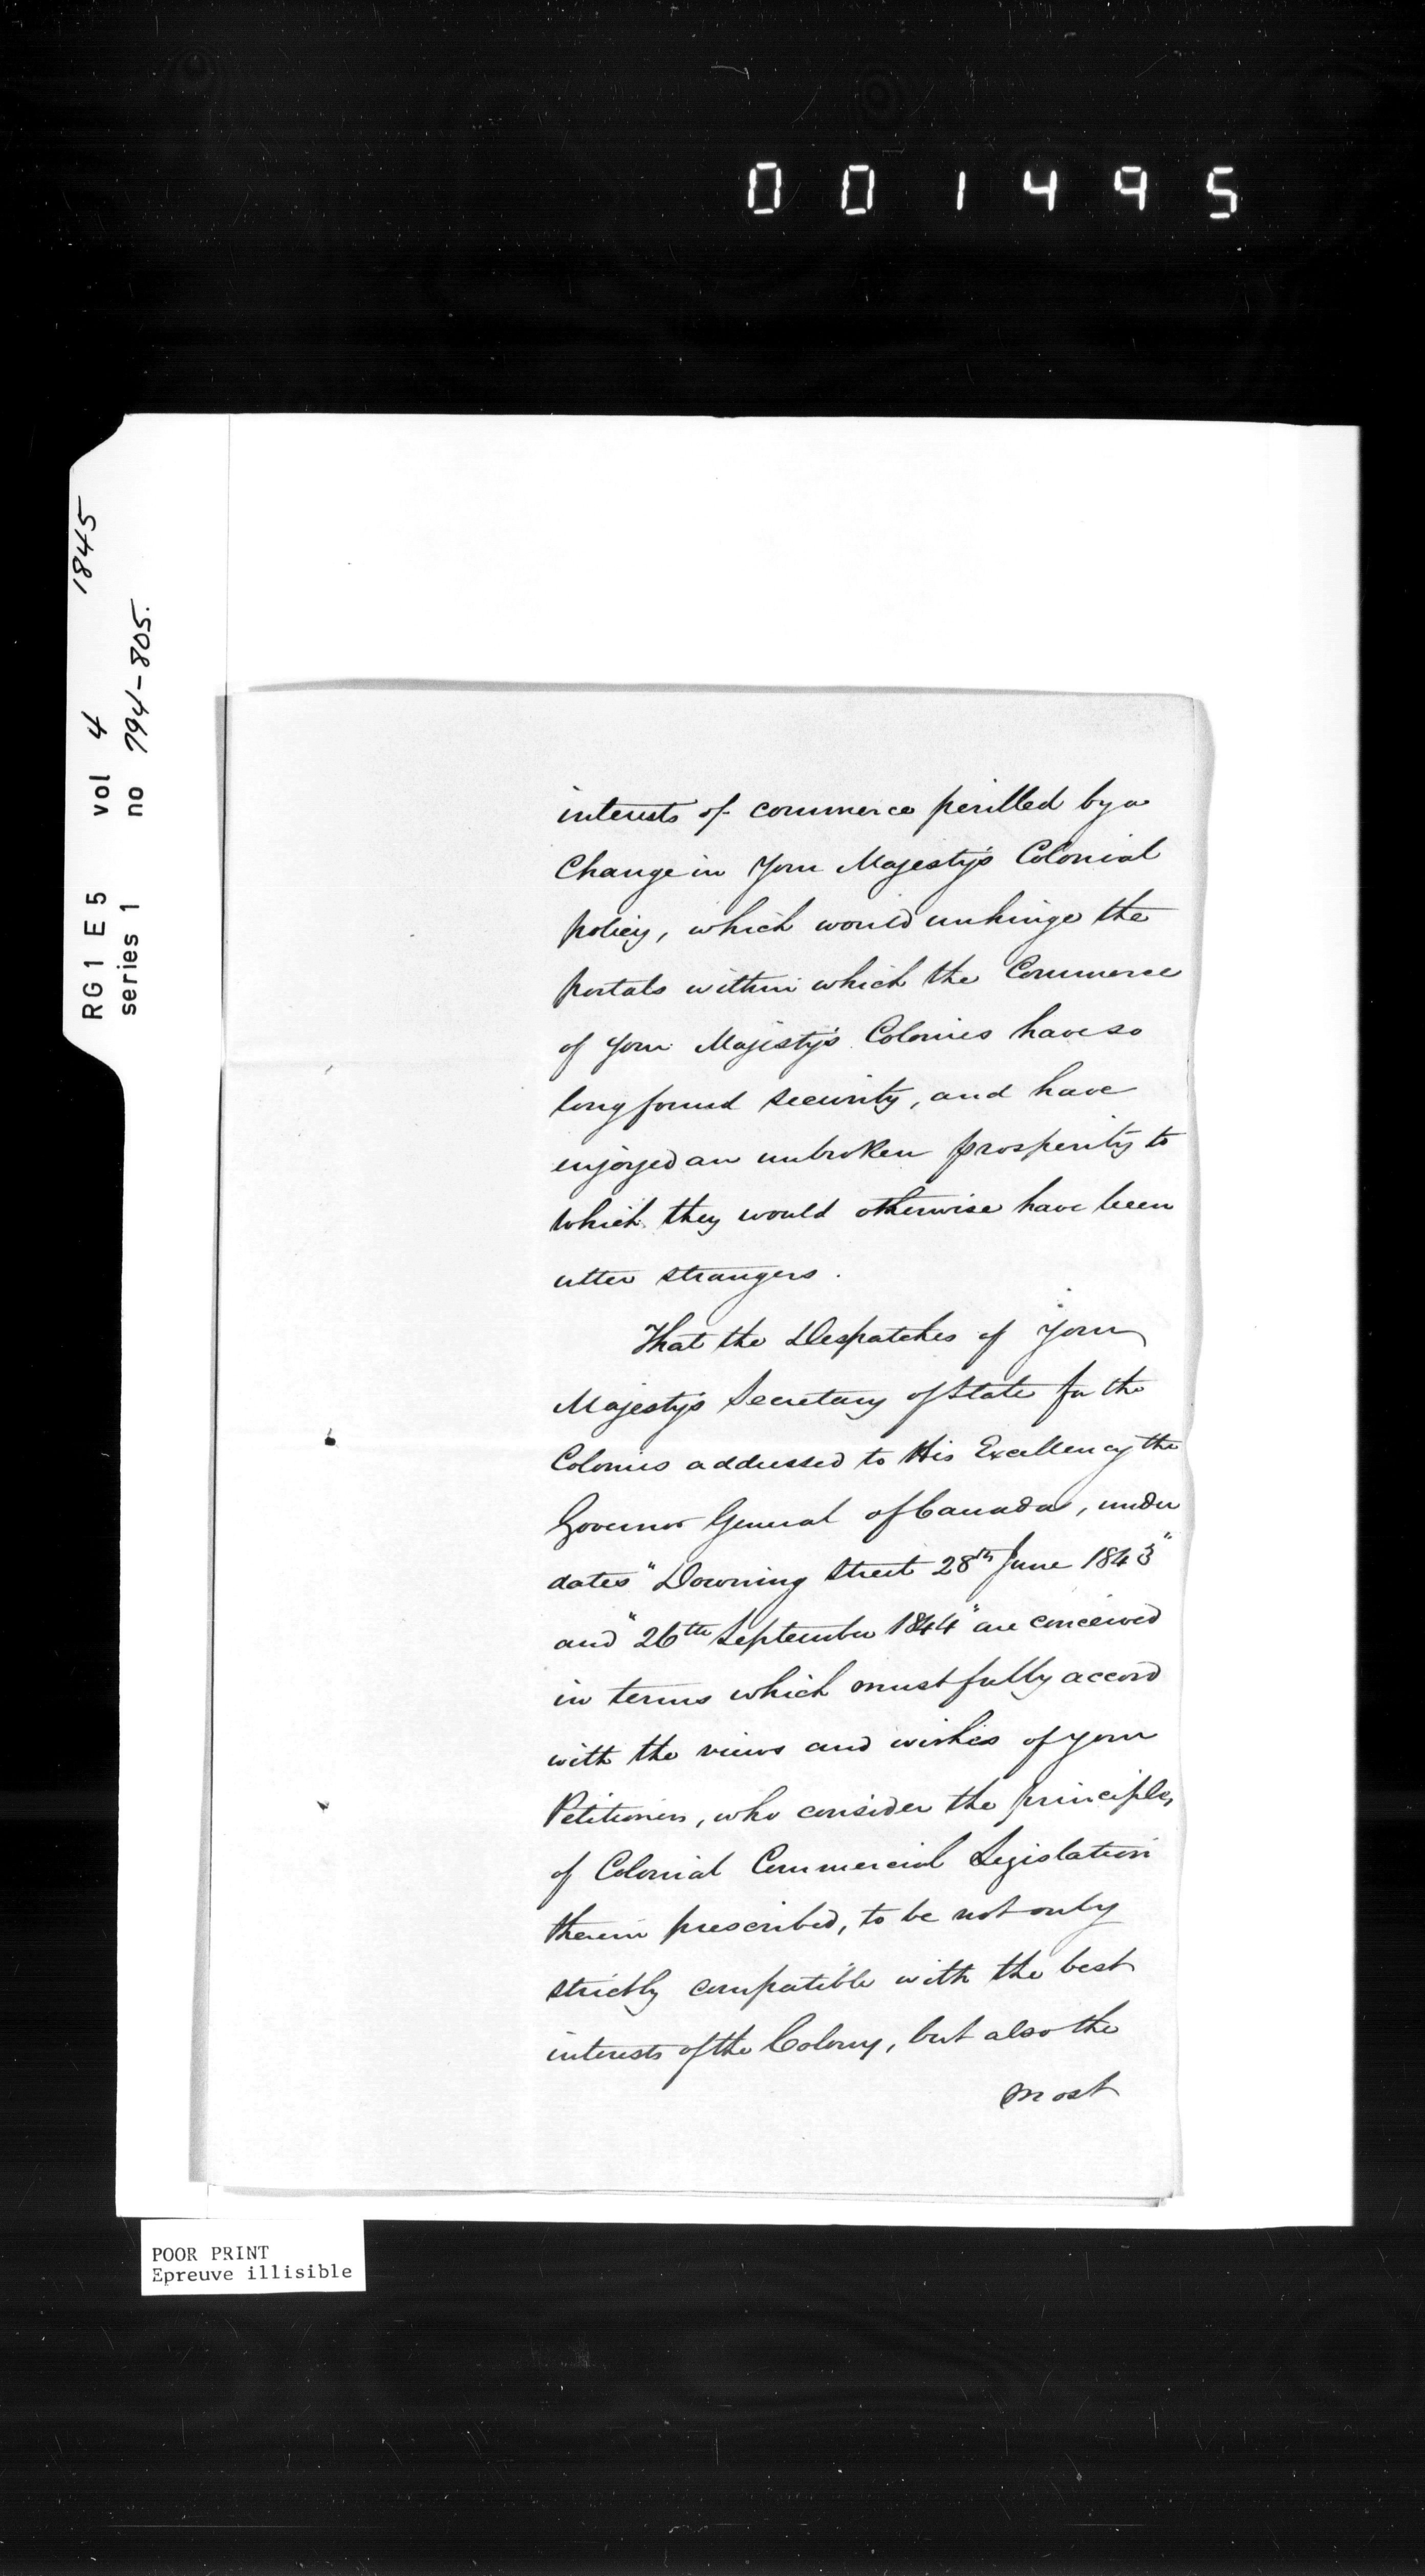 001495
RG1 E5 vol 4 1845
series 1 no 794-805.
interests of commerce perilled by a
Change in Your Majesty's Colonial
policy, which would unhinge the
portals within which the Commerce
of Your Majesty's Colonies have so
long found security, and have
enjoyed an unbroken prosperity to
which they would otherwise have been
utter strangers.
That the Despatches of Your
Majesty's Secretary of State for the
Colonies addressed to His Excellency the
Governor General of Canada, under
dates "Downing Street 28th June 1843"
and "26th September 1844" are conceived
in terms which must fully accord
with the views and wishes of your
Petitioners, who consider the principles
of Colonial Commercial Legislation
therein prescribed, to be not only
strictly compatible with the best
interests of the Colony, but also the
most
POOR PRINT
Epreuve illisible